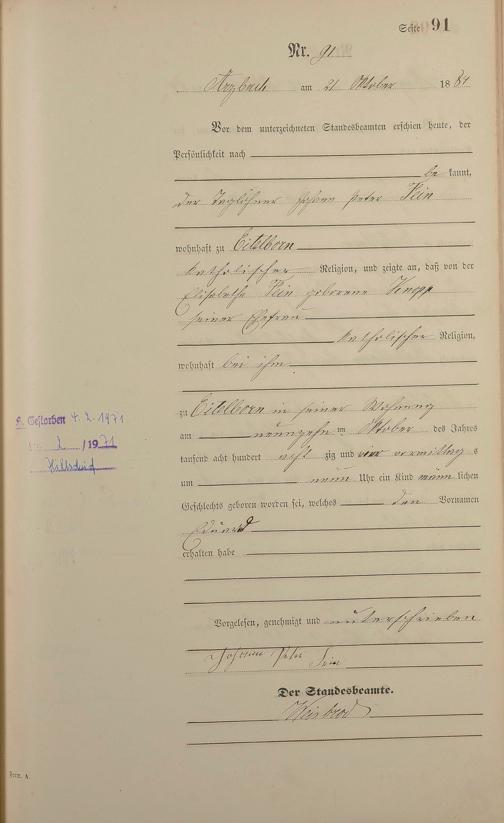 Seite 91
Nr. 91
Arzbach am 21 Oktober 1884
Vor dem unterzeichneten Standesbeamten erschien heute, der
Persönlichkeit nach
be kannt,
der Taglöhner Johann Peter
wohnhaft zu Eitelborn
katholischer Religion, und zeigte an, daß von der
Elisabetha geborene Knopp
seiner Ehefrau
katholischer Religion,
wohnhaft bei ihm
zu Eitelborn in seiner Wohnung
am neunzehn ten Oktober des Jahres
tausend acht hundert acht zig und vier vormittag s
um neun Uhr ein Kind männ lichen
Geschlechts geboren worden sei, welches den Vornamen
Eduard
erhalten habe
Vorgelesen, genehmigt und unterschrieben
Johann Peter
Der Standesbeamte.
Weisbrod
Gestorben 4.2.1971
2/1971
Form. A.